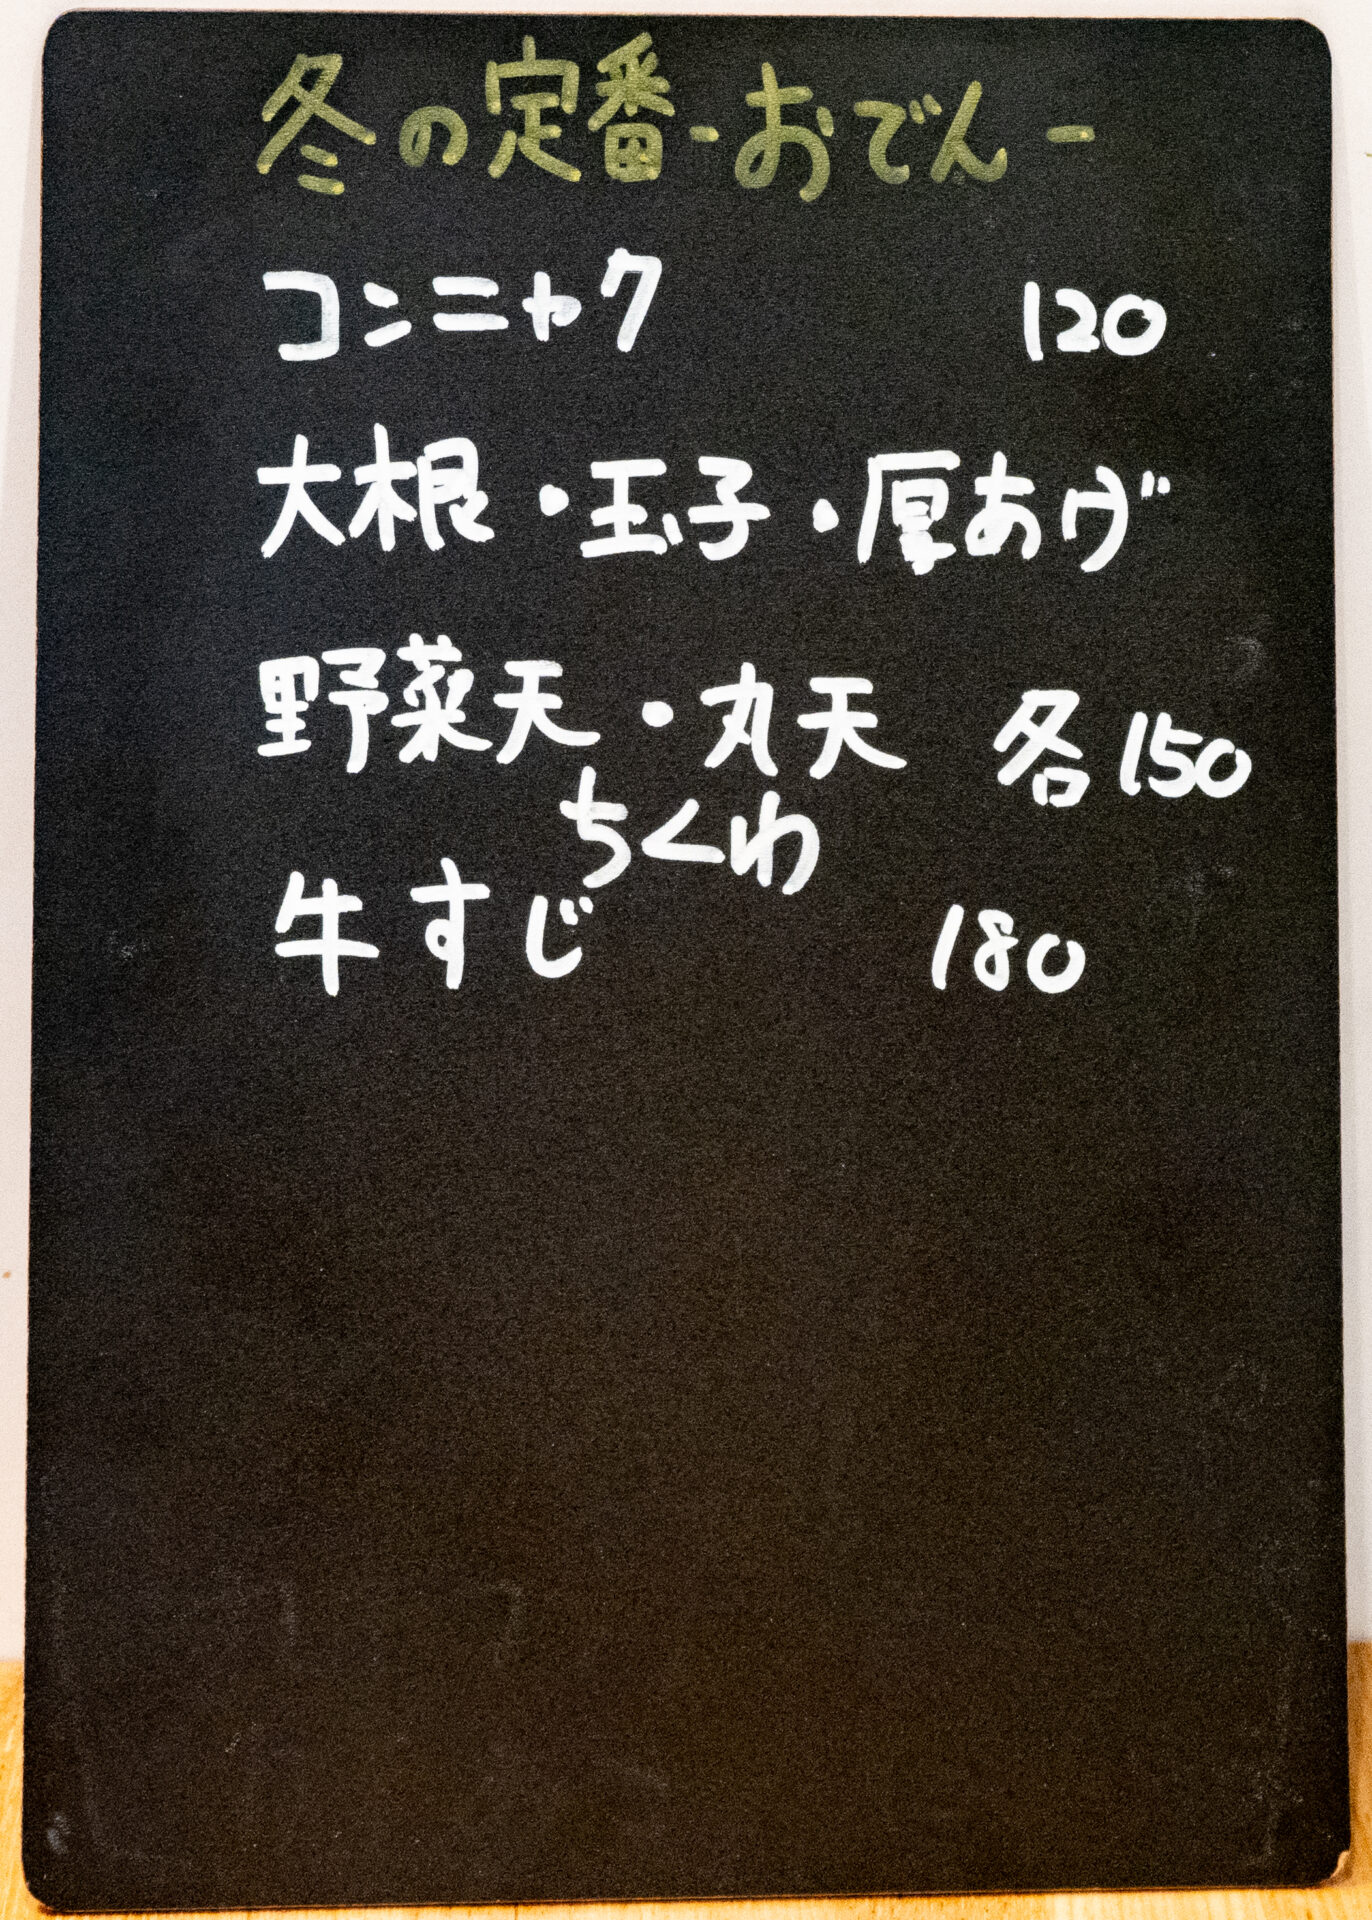 冬の定番-おでん-
コンニャク 120
大根・玉子・厚あげ
野菜天・丸天 各150
ちくわ
牛すじ 180